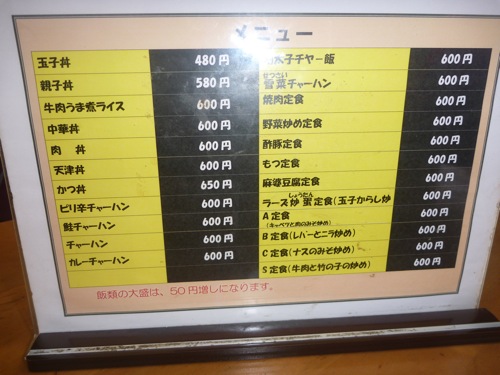 メニュー
玉子丼 480円
親子丼 580円
牛肉うま煮ライス 600円
中華丼 600円
肉 丼 600円
天津丼 600円
かつ丼 650円
ピリ辛チャーハン 600円
鮭チャーハン 600円
チャーハン 600円
カレーチャーハン 600円
太子チヤー飯 600円
せつさい
雪菜チャーハン 600円
焼肉定食 600円
野菜炒め定食 600円
酢豚定食 600円
もつ定食 600円
麻婆豆腐定食 600円
しょうだん
ラーズ炒蛋定食(玉子からし炒 600円
A定食 600円
(キャベツと肉のみそ炒め)
B定食(レバーとニラ炒め) 600円
C定食(ナスのみそ炒め) 600円
S定食(牛肉と竹の子の炒め) 600円
飯類の大盛は、50円増しになります。